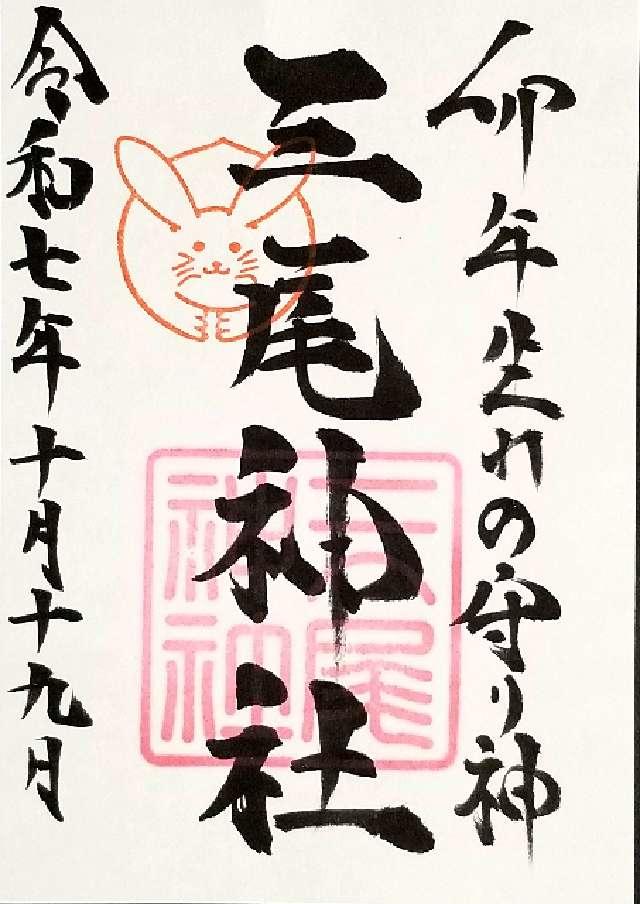 卯年生れの守り神
三尾神社
三尾神社
令和七年十月十九日